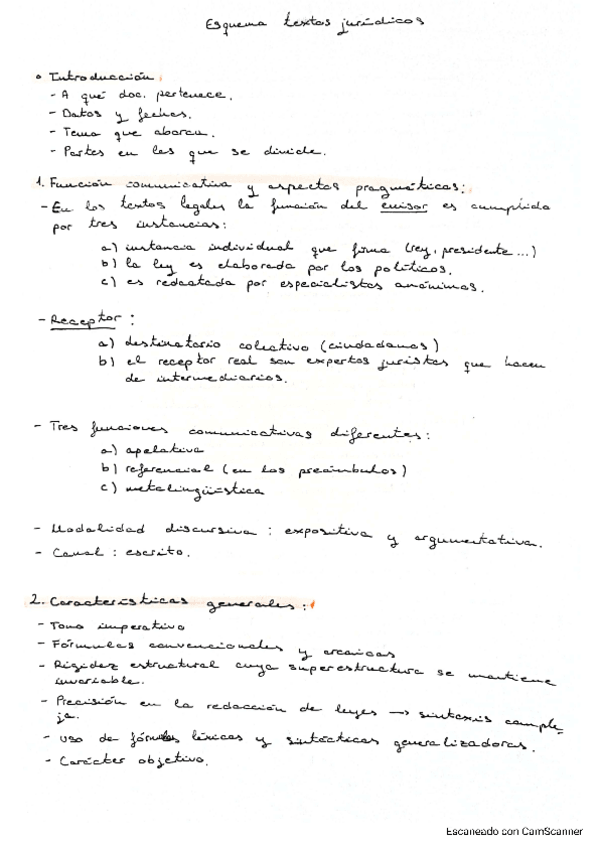 Esquema textos jurídicos
• Introducción.
- A qué doc. pertenece.
- Datos y fechas.
- Tema que abarca.
- Partes en las que se divide.
1. Función comunicativa y aspectos pragmáticos:
- En los textos legales la función del emisor es cumplida
por tres instancias:
a) instancia individual que firma (rey, presidente...)
b) la ley es elaborada por los políticos.
c) es redactada por especialistas anónimos.
- Receptor:
a) destinatario colectivo (ciudadanos)
b) el receptor real son expertos juristas que hacen
de intermediarios.
- Tres funciones comunicativas diferentes:
a) apelativa
b) referencial (en los preámbulos)
c) metalingüística
- Modalidad discursiva: expositiva y argumentativa.
- Canal: escrito.
2. Características generales:
- Tono imperativo
- Fórmulas convencionales y arcaicas
- Rigidez estructural cuya superestructura se mantiene
invariable.
- Precisión en la redacción de leyes → sintaxis comple-
ja.
- Uso de fórmulas léxicas y sintácticas generalizadoras.
- Carácter objetivo.
Escaneado con CamScanner